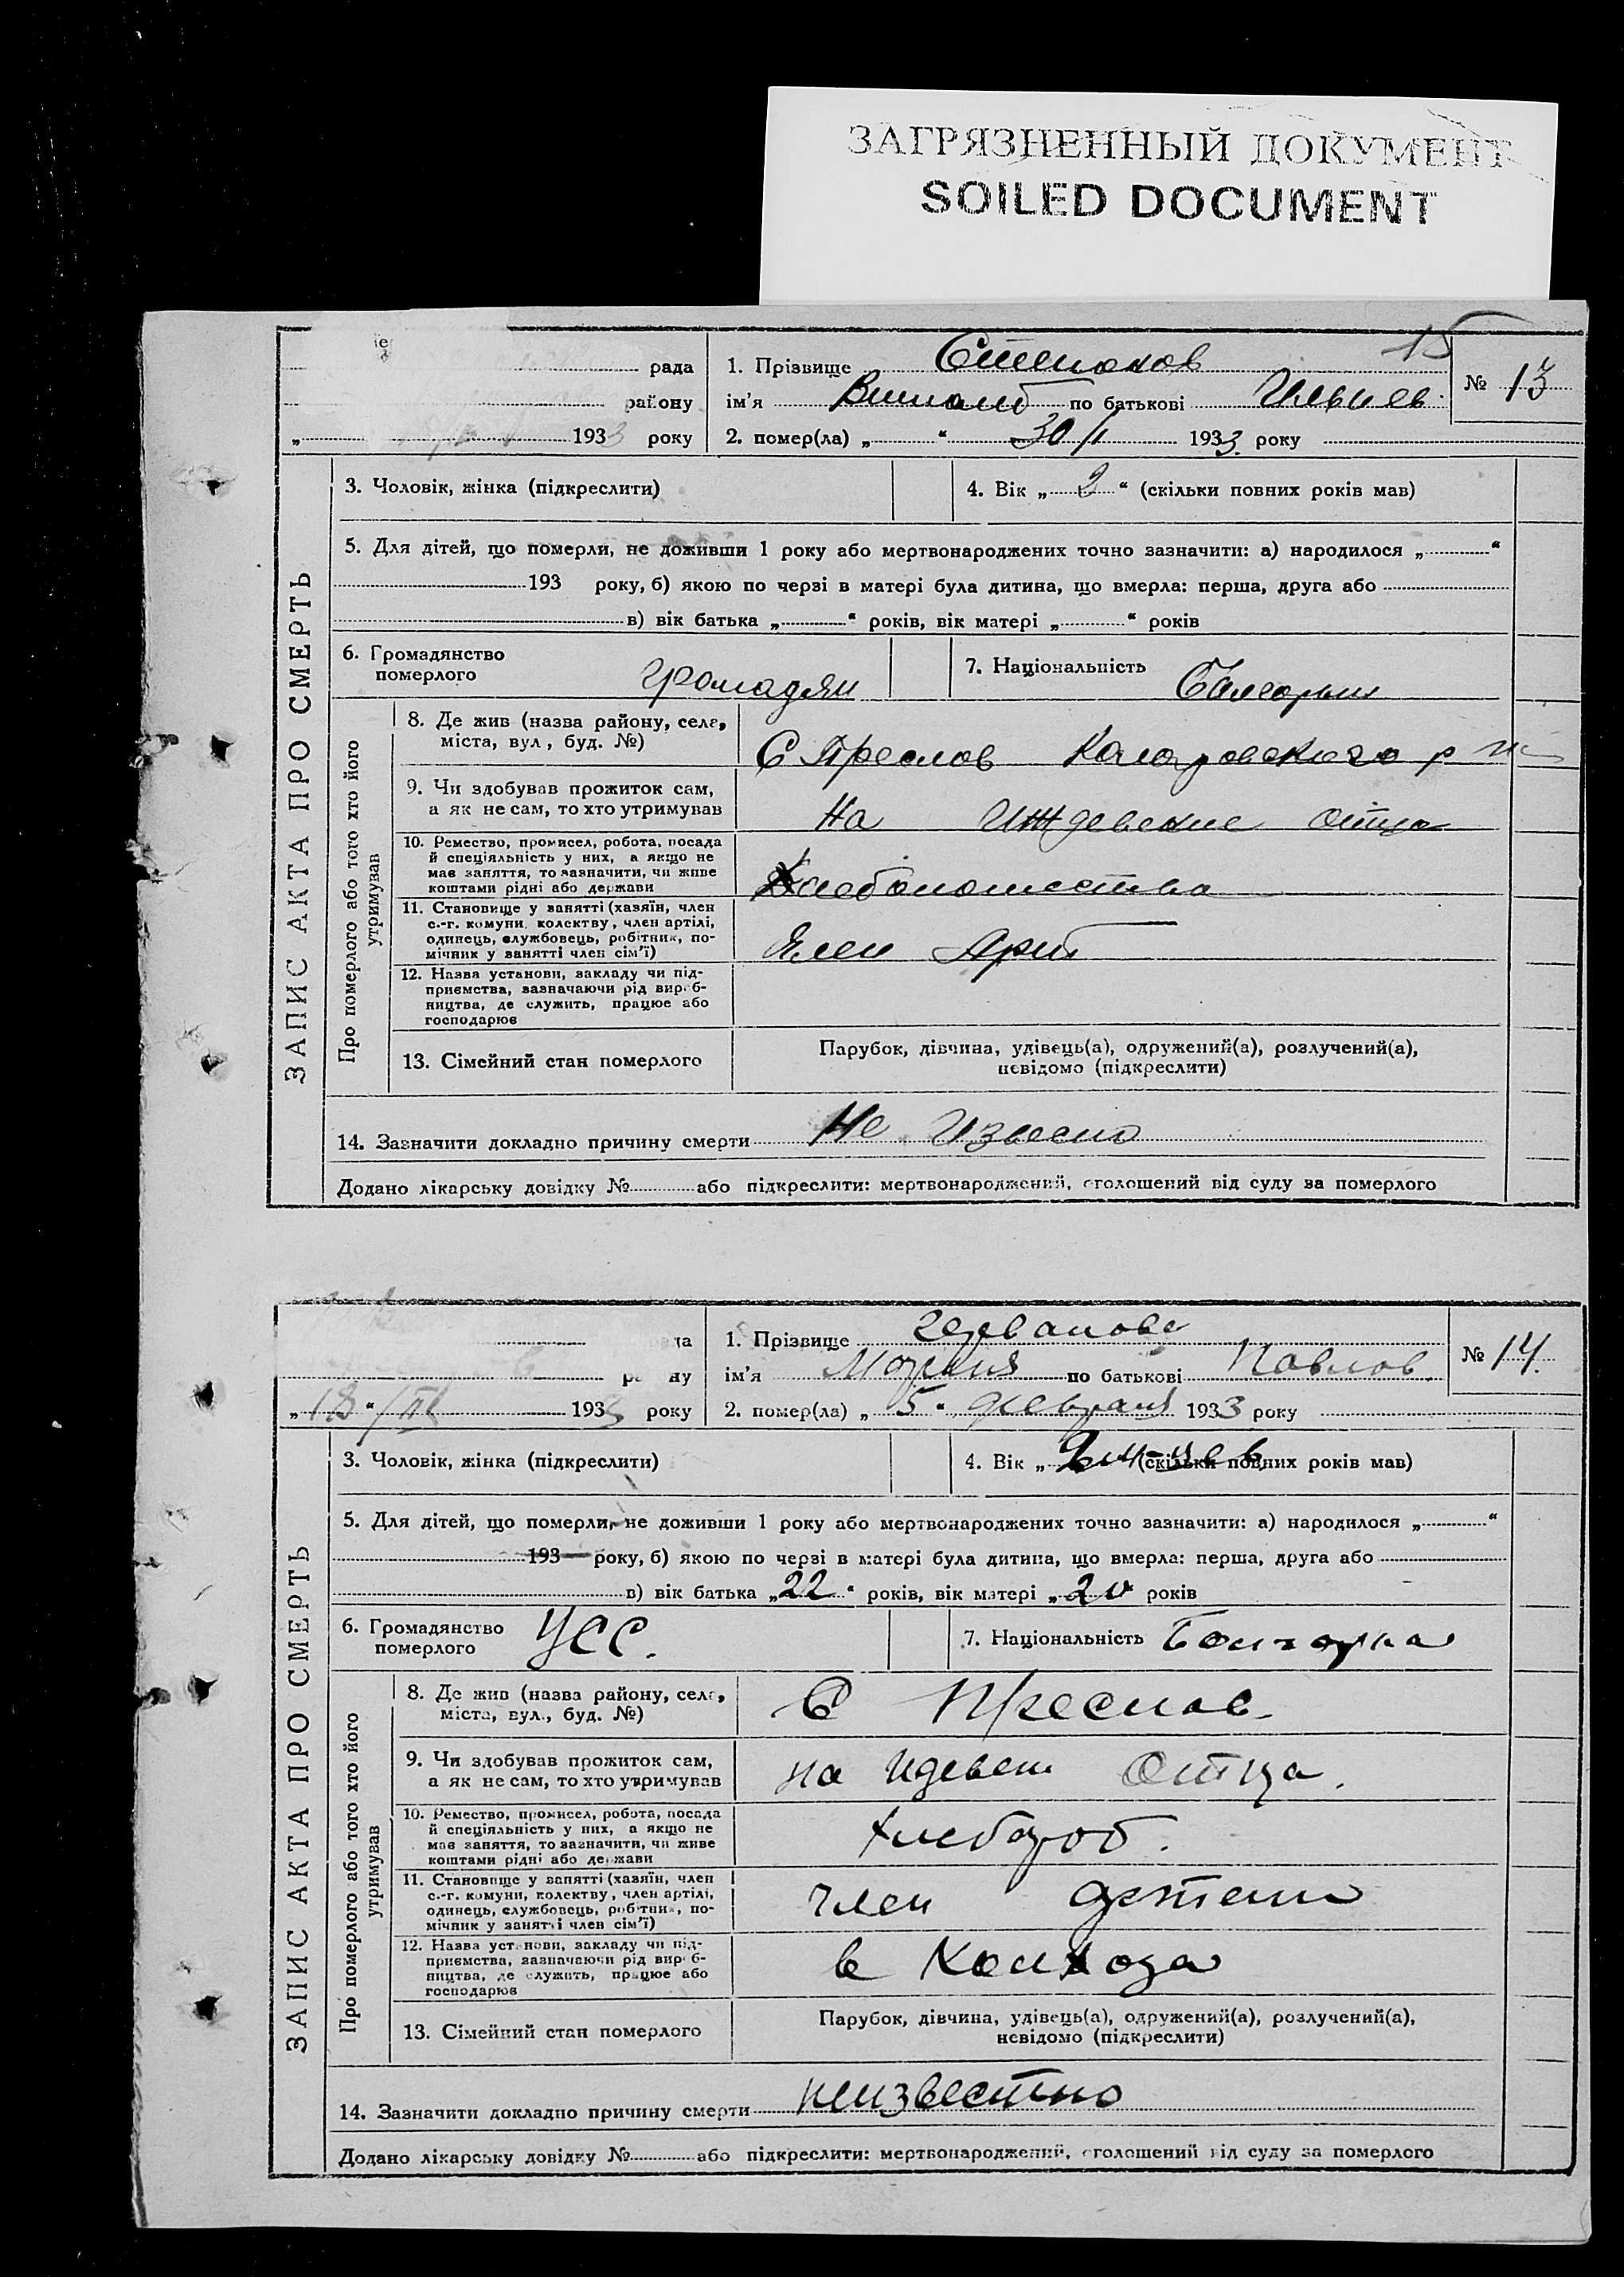 ЗАГРЯЗНЕННЫЙ ДОКУМЕНТ
SOILED DOCUMENT
15
рада
району
1933 року
1. Прізвище
ім'я по батькові Ильиев
2. помер(ла) „ “ 30/I 1933. року
№ 13
ЗАПИС АКТА ПРО СМЕРТЬ
3. Чоловік, жінка (підкреслити)
4. Вік „ 2 “ (скільки повних років мав)
5. Для дітей, що померли, не доживши 1 року або мертвонароджених точно зазначити: а) народилося „ “
193 року, б) якою по черзі в матері була дитина, що вмерла: перша, друга або
в) вік батька „ “ років, вік матері „ “ років
6. Громадянство
померлого громадян
7. Національність Болгарин
Про померлого або того хто його
утримував
8. Де жив (назва району, села,
міста, вул., буд. №)
С Преслов Коларовского р н
9. Чи здобував прожиток сам,
а як не сам, то хто утримував
На Иждевение отца
10. Ремество, промисел, робота, посада
й спеціяльність у них, а якщо не
має заняття, то зазначити, чи живе
коштами рідні або держави
11. Становище у занятті (хазяїн, член
с.-г. комуни, колектву, член артілі,
одинець, службовець, робітник, по-
мічник у занятті член сім'ї)
Член Арт
12. Назва установи, закладу чи під-
приємства, зазначаючи рід вироб-
ництва, де служить, працює або
господарює
13. Сімейний стан померлого
Парубок, дівчина, удівець(а), одружений(а), розлучений(а),
невідомо (підкреслити)
14. Зазначити докладно причину смерти Не Извесно
Додано лікарську довідку № або підкреслити: мертвонароджений, оголошений від суду за померлого
ну
„18“/III 1933 року
1. Прізвище
ім'я Мария по батькові Павлов.
2. помер(ла) „ 5 “ февраля 1933 року
№ 14.
ЗАПИС АКТА ПРО СМЕРТЬ
3. Чоловік, жінка (підкреслити)
4. Вік „ (скільки повних років мав)
5. Для дітей, що померли, не доживши 1 року або мертвонароджених точно зазначити: а) народилося „ “
193 року, б) якою по черзі в матері була дитина, що вмерла: перша, друга або
в) вік батька „22“ років, вік матері „20“ років
6. Громадянство
померлого УСС.
7. Національність Болгарка
Про померлого або того хто його
утримував
8. Де жив (назва району, села,
міста, вул., буд. №)
С Преслав
9. Чи здобував прожиток сам,
а як не сам, то хто утримував
на Идевен Отца.
10. Ремество, промисел, робота, посада
й спеціяльність у них, а якщо не
має заняття, то зазначити, чи живе
коштами рідні або держави
Хлебороб.
11. Становище у занятті (хазяїн, член
с.-г. комуни, колектву, член артілі,
одинець, службовець, робітник, по-
мічник у занятті член сім'ї)
член
12. Назва установи, закладу чи під-
приємства, зазначаючи рід вироб-
ництва, де служить, працює або
господарює
в Колхоза
13. Сімейний стан померлого
Парубок, дівчина, удівець(а), одружений(а), розлучений(а),
невідомо (підкреслити)
14. Зазначити докладно причину смерти неизвестно
Додано лікарську довідку № або підкреслити: мертвонароджений, оголошений від суду за померлого